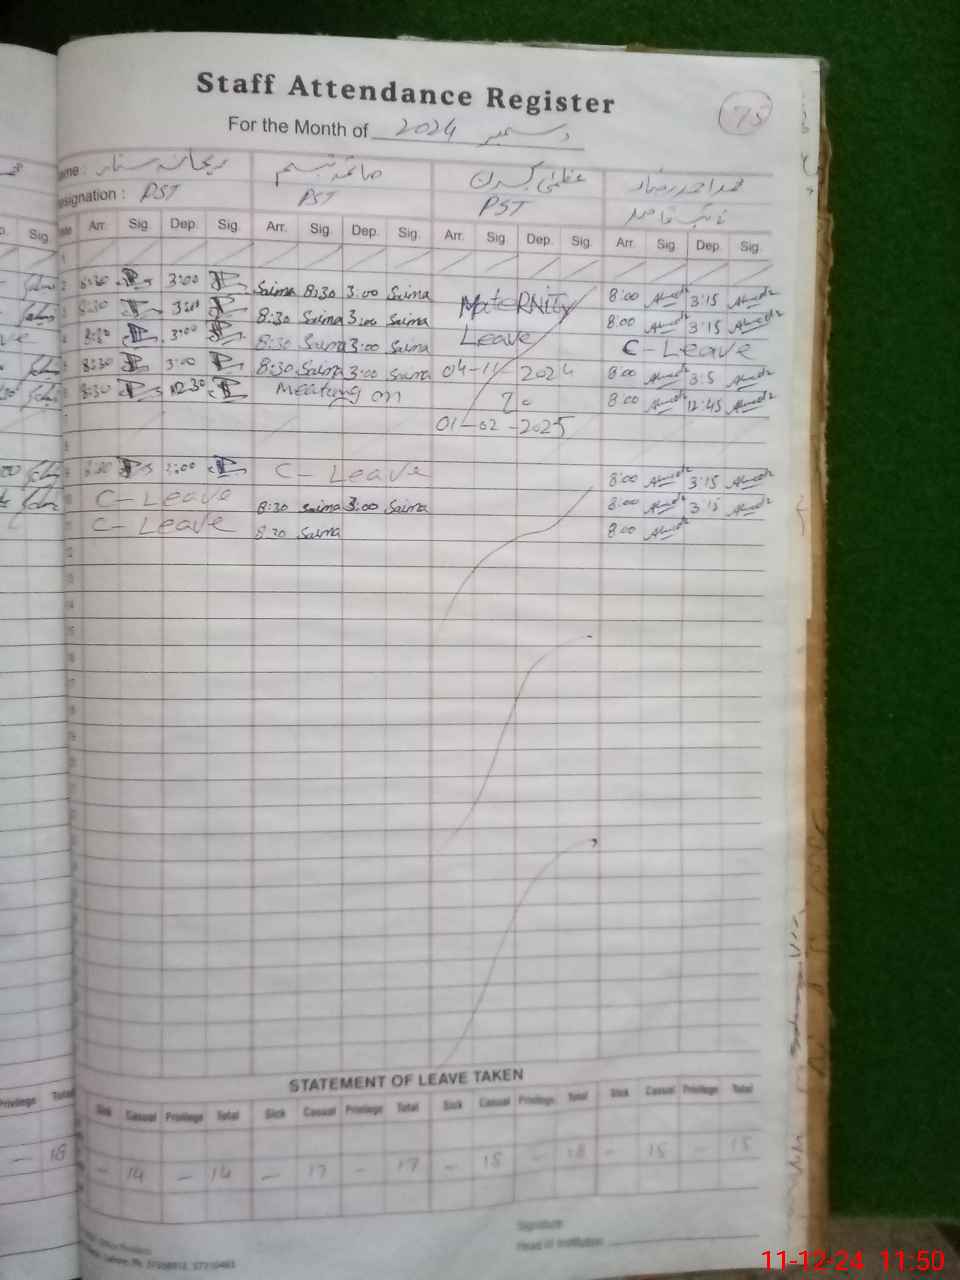 Staff Attendance Register
75
For the Month of دسمبر 2024
ame : ریحانہ ستار صائمہ تبسم عظمیٰ
esignation : PST PST PST نائب قاصد
Sig. Arr. Sig. Dep. Sig. Arr. Sig. Dep. Sig. Arr. Sig. Dep. Sig. Arr. Sig. Dep. Sig.
1
2 8:30 3:00 Saima 8:30 3:00 Saima Maternity 8:00 3:15
3 8:30 3:00 8:30 Saima 3:00 Saima Leave 8:00 3:15
4 8:30 3:00 8:30 Saima 3:00 Saima C-Leave
5 8:30 3:00 8:30 Saima 3:00 Saima 04-11-2024 8:00 3:5
6 8:30 12:30 on To 8:00 12:45
7 01-02-2025
8
9 8:30 3:00 C-Leave 8:00 3:15
10 C-Leave 8:30 Saima 3:00 Saima 8:00 3:15
11 C-Leave 8:30 Saima 8:00
12
13
14
15
16
17
18
19
STATEMENT OF LEAVE TAKEN
Privilege Total Sick Casual Privilege Total Sick Casual Privilege Total Sick Casual Privilege Total Sick Casual Privilege Total
- 18 - 14 - 14 - 17 - 17 - 18 - 18 - 15 - 15
Signature
Head of Institution
11-12-24 11:50